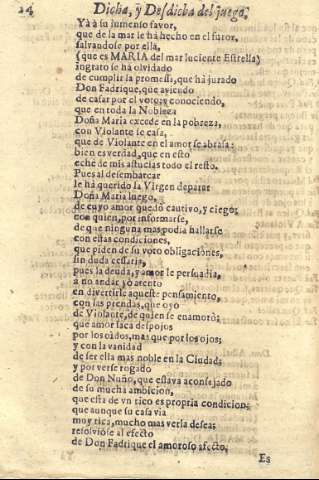 24 Dicha, y Desdicha del juego,
Yà à su sumento favor,
que de la mar le ha hecho en el furor,
salvandose por ella,
(que es MARIA del mar luciente Estrella)
ingrato se ha olvidado
de cumplir la promessa, que ha jurado
Don Fadrique, que aviendo
de casar por el voto, y conociendo,
que en toda la Nobleza
Doña Maria excede en la pobreza,
con Violante se casa,
que de Violante en el amor se abrasa:
bien es verdad, que en esto
eché de mis astucias todo el resto.
Pues al desembarcar
le há querido la Virgen deparar
Doña Maria luego,
de cuyo amor quedó cautivo, y ciego;
con quien, por informarse,
de que ninguna mas podia hallarse
con estas condiciones,
que piden de su voto obligaciones,
sin duda casaria,
pues la deuda, y amor le persuadia,
a no andar yo atento
en divertirle aqueste pensamiento,
con las prendas, que oyò
de Violante, de quien se enamorò;
que amor saca despojos
por los oìdos, mas que por los ojos;
y con la vanidad
de ser ella mas noble en la Ciudad;
y por verse rogado
de Don Nuño, que estava aconsejado
de su mucha ambicion,
que esta de vn rico es propria condicion;
que aunque su casa via
muy rica, mucho mas verla desea;
resolviòse al efecto
de Don Fadrique el amoroso afecto.
Es